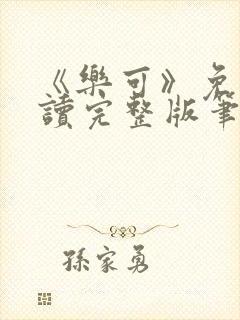 《樂可》免
讀完整版筆
孫家勇